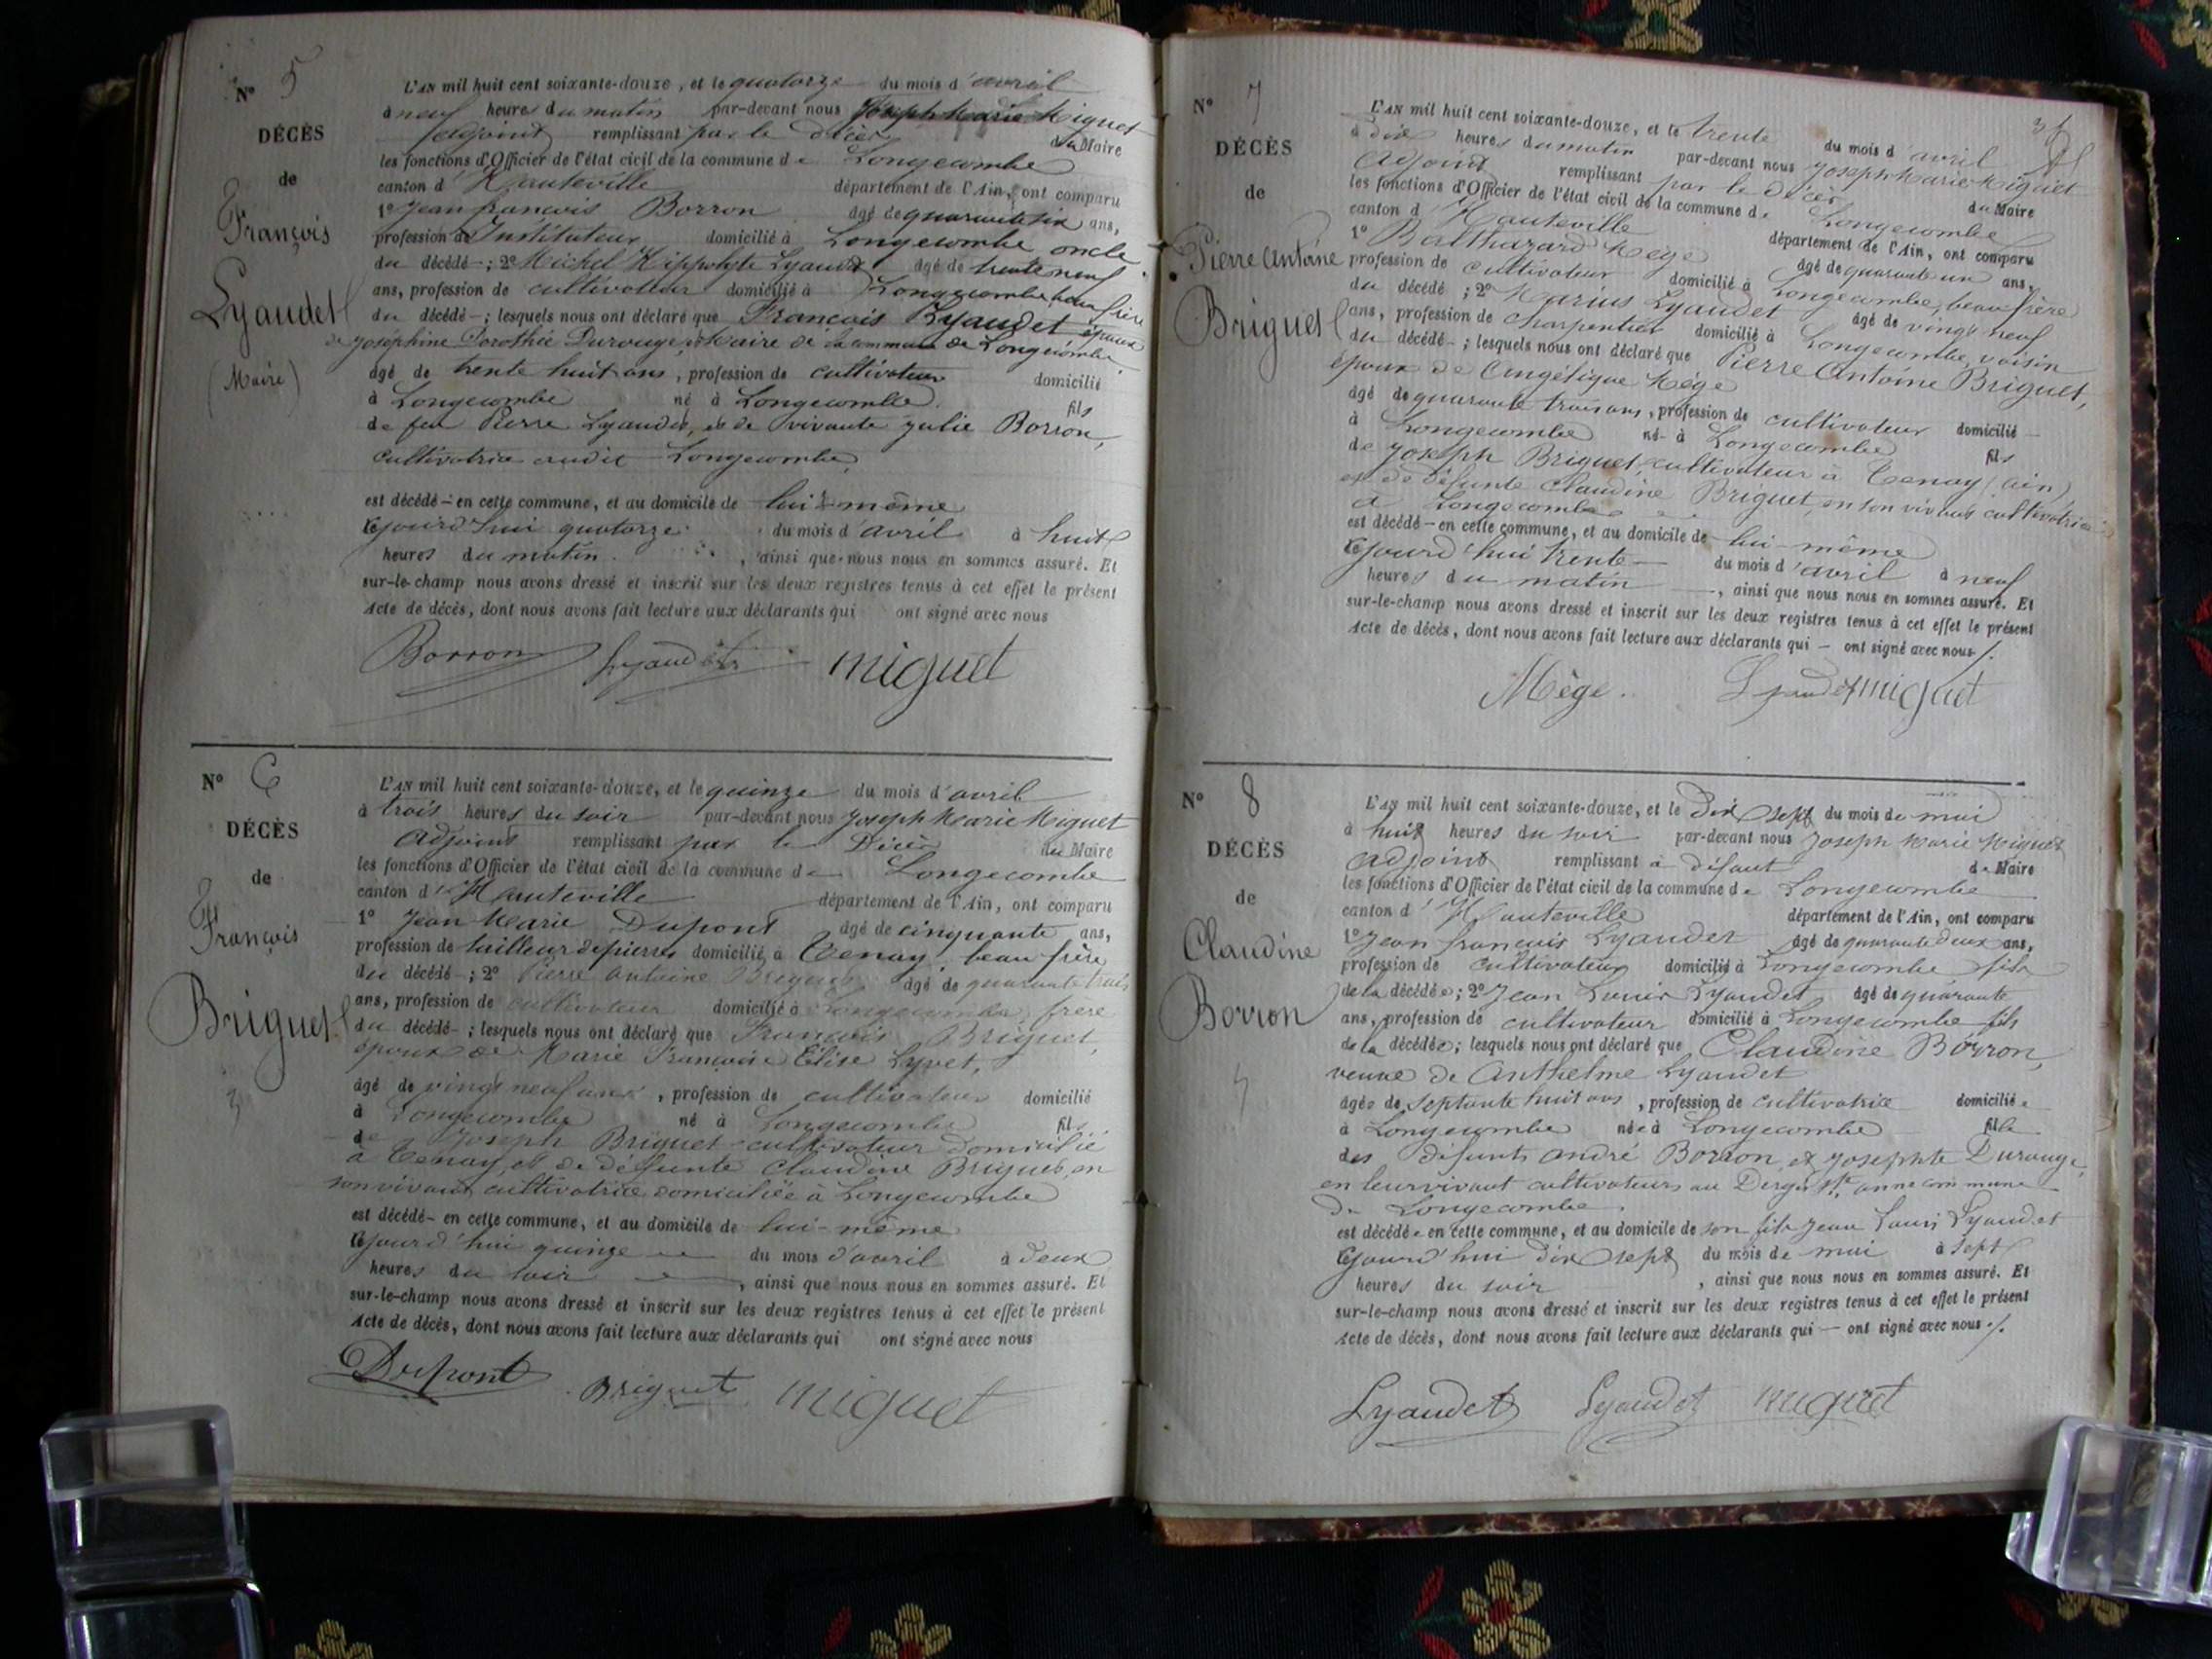 N° 5
DÉCÈS
de
François
Lyaudet
(Maire)
L'AN mil huit cent soixante-douze, et le quatorze du mois d'avril
à neuf heures du matin par-devant nous Joseph Marie Miguet
adjoint remplissant par le décès du Maire
les fonctions d'Officier de l'état civil de la commune de Longecombe
canton d'Hauteville département de l'Ain, ont comparu
1° Jean françois Borron âgé de quarante six ans,
profession de Instituteur domicilié à Longecombe oncle
du décédé ; 2° Michel Hippolyte Lyaudet âgé de trente neuf
ans, profession de cultivateur domicilié à Longecombe beau frère
du décédé ; lesquels nous ont déclaré que François Lyaudet époux
de Joséphine Dorothée Durouge, Maire de la commune de Longecombe
âgé de trente huit ans, profession de cultivateur domicilié
à Longecombe né à Longecombe. fils
de feu Pierre Lyaudet, et de vivante Julie Borron,
cultivatrice audit Longecombe,
est décédé en cette commune, et au domicile de lui-même
cejourd'hui quatorze du mois d'avril à huit
heures du matin , ainsi que nous nous en sommes assuré. Et
sur-le-champ nous avons dressé et inscrit sur les deux registres tenus à cet effet le présent
Acte de décès, dont nous avons fait lecture aux déclarants qui ont signé avec nous
Borron Lyaudet miguet
N° 6
DÉCÈS
de
François
Briguet
3
L'AN mil huit cent soixante-douze, et le quinze du mois d'avril
à trois heures du soir par-devant nous Joseph Marie Miguet
adjoint remplissant par le Décès du Maire
les fonctions d'Officier de l'état civil de la commune de Longecombe
canton d'Hauteville département de l'Ain, ont comparu
1° Jean Marie Dupont âgé de cinquante ans,
profession de tailleur de pierres domicilié à Tenay, beau frère
du décédé ; 2° Pierre Antoine Briguet, âgé de quarante trois
ans, profession de cultivateur domicilié à Longecombe, frère
du décédé ; lesquels nous ont déclaré que François Briguet,
époux de Marie Françoise Élise Lyvet,
âgé de vingt neuf ans, profession de cultivateur domicilié
à Longecombe né à Longecombe fils
de Joseph Briguet cultivateur domicilié
à Tenay, et de défunte Claudine Briguet, en
son vivant cultivatrice domiciliée à Longecombe
est décédé en cette commune, et au domicile de lui-même
cejourd'hui quinze du mois d'avril à deux
heures du soir , ainsi que nous nous en sommes assuré. Et
sur-le-champ nous avons dressé et inscrit sur les deux registres tenus à cet effet le présent
Acte de décès, dont nous avons fait lecture aux déclarants qui ont signé avec nous
Dupont Briguet miguet
N° 7
DÉCÈS
de
Pierre Antoine
Briguet
L'AN mil huit cent soixante-douze, et le trente du mois d'avril
à dix heures du matin par-devant nous Joseph Marie Miguet
adjoint remplissant par le décès du Maire
les fonctions d'Officier de l'état civil de la commune de Longecombe
canton d'Hauteville département de l'Ain, ont comparu
1° Balthazard Mège âgé de quarante un ans,
profession de cultivateur domicilié à Longecombe, beau frère
du décédé ; 2° Marius Lyaudet âgé de vingt neuf
ans, profession de charpentier domicilié à Longecombe, voisin
du décédé ; lesquels nous ont déclaré que Pierre Antoine Briguet,
époux de Angélique Mège
âgé de quarante trois ans, profession de cultivateur domicilié
à Longecombe né à Longecombe fils
de Joseph Briguet, cultivateur à Tenay (ain)
et de défunte Claudine Briguet, en son vivant cultivatrice
à Longecombe
est décédé en cette commune, et au domicile de lui-même
cejourd'hui trente du mois d'avril à neuf
heures du matin , ainsi que nous nous en sommes assuré. Et
sur-le-champ nous avons dressé et inscrit sur les deux registres tenus à cet effet le présent
Acte de décès, dont nous avons fait lecture aux déclarants qui ont signé avec nous
Mège. Lyaudet miguet
N° 8
DÉCÈS
de
Claudine
Borron
L'AN mil huit cent soixante-douze, et le Dix sept du mois de mai
à huit heures du soir par-devant nous Joseph Marie Miguet
adjoint remplissant à défaut de Maire
les fonctions d'Officier de l'état civil de la commune de Longecombe
canton d'Hauteville département de l'Ain, ont comparu
1° Jean françois Lyaudet âgé de quarante deux ans,
profession de cultivateur domicilié à Longecombe fils
de la décédée ; 2° Jean Louis Lyaudet âgé de quarante
ans, profession de cultivateur domicilié à Longecombe fils
de la décédée ; lesquels nous ont déclaré que Claudine Borron,
veuve de Anthelme Lyaudet
âgée de septante huit ans, profession de cultivatrice domiciliée
à Longecombe née à Longecombe fille
des défunts andré Borron et Josephte Durouge,
en leur vivant cultivateurs au Dergit Ste anne commune
de Longecombe.
est décédée en cette commune, et au domicile de son fils Jean Louis Lyaudet
cejourd'hui dix sept du mois de mai à sept
heures du soir , ainsi que nous nous en sommes assuré. Et
sur-le-champ nous avons dressé et inscrit sur les deux registres tenus à cet effet le présent
Acte de décès, dont nous avons fait lecture aux déclarants qui ont signé avec nous
Lyaudet Lyaudet miguet